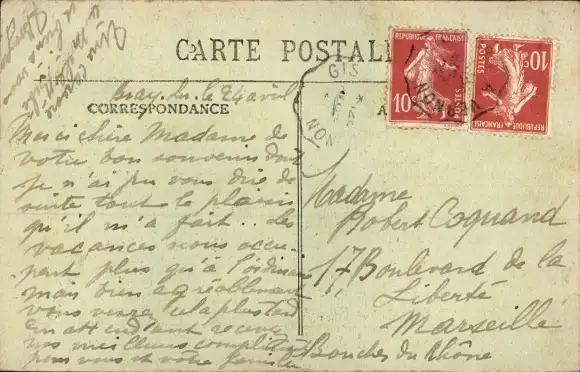 CARTE POSTALE
REPUBLIQUE FRANÇAISE
10
POSTES
REPUBLIQUE FRANÇAISE
10
POSTES
GIS
le 24 avril
CORRESPONDANCE
Merci chère Madame de
votre bon souvenir dont
je n'ai pu vous dire de
suite tout le plaisir
qu'il m'a fait.. les
vacances nous occu-
pent plus qu'à l'ordinaire
mais bien agréablement
vous verrez cela plus tard
En attendant recevez
nos meilleurs compliments
pour vous et votre famille
Madame
Robert Coquand
17 Boulevard de la
Liberté
Marseille
Bouches du Rhône